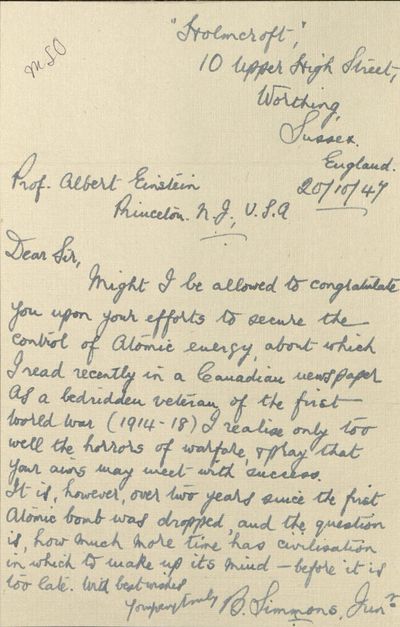 MSO
"Holmcroft",
10 Upper High Street,
Worthing,
Sussex.
England.
20/10/47
Prof. Albert Einstein
Princeton. N.J., U.S.A
Dear Sir,
Might I be allowed to congratulate
you upon your efforts to secure the
control of Atomic energy, about which
I read recently in a Canadian newspaper
As a bedridden veteran of the first
World War (1914-18) I realise only too
well the horrors of warfare, & pray that
your aims may meet with success.
It is, however, over two years since the first
Atomic bomb was dropped, and the question
is, how much more time has civilisation
in which to make up its mind - before it is
too late. With best wishes
B. Simmons, Junr